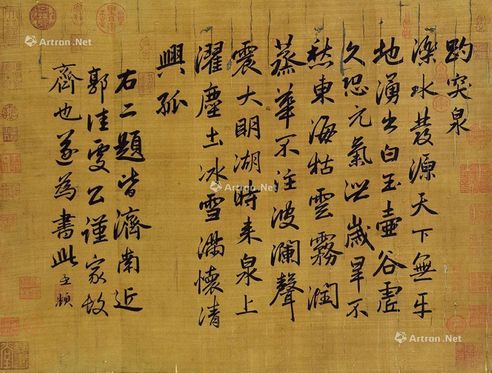 趵突泉
濼水發源天下無平
地湧出白玉壺谷虛
久恐元氣洩歲旱不
愁東海枯雲霧潤
蒸華不注波瀾聲
震大明湖時來泉上
濯塵土冰雪滿懷清
興孤
右二題皆濟南近
郭佳處公謹家故
齊也遂為書此 孟頫
Artron.Net
Artron.Net
Artron.Net
Artron.Net
Artron.Net